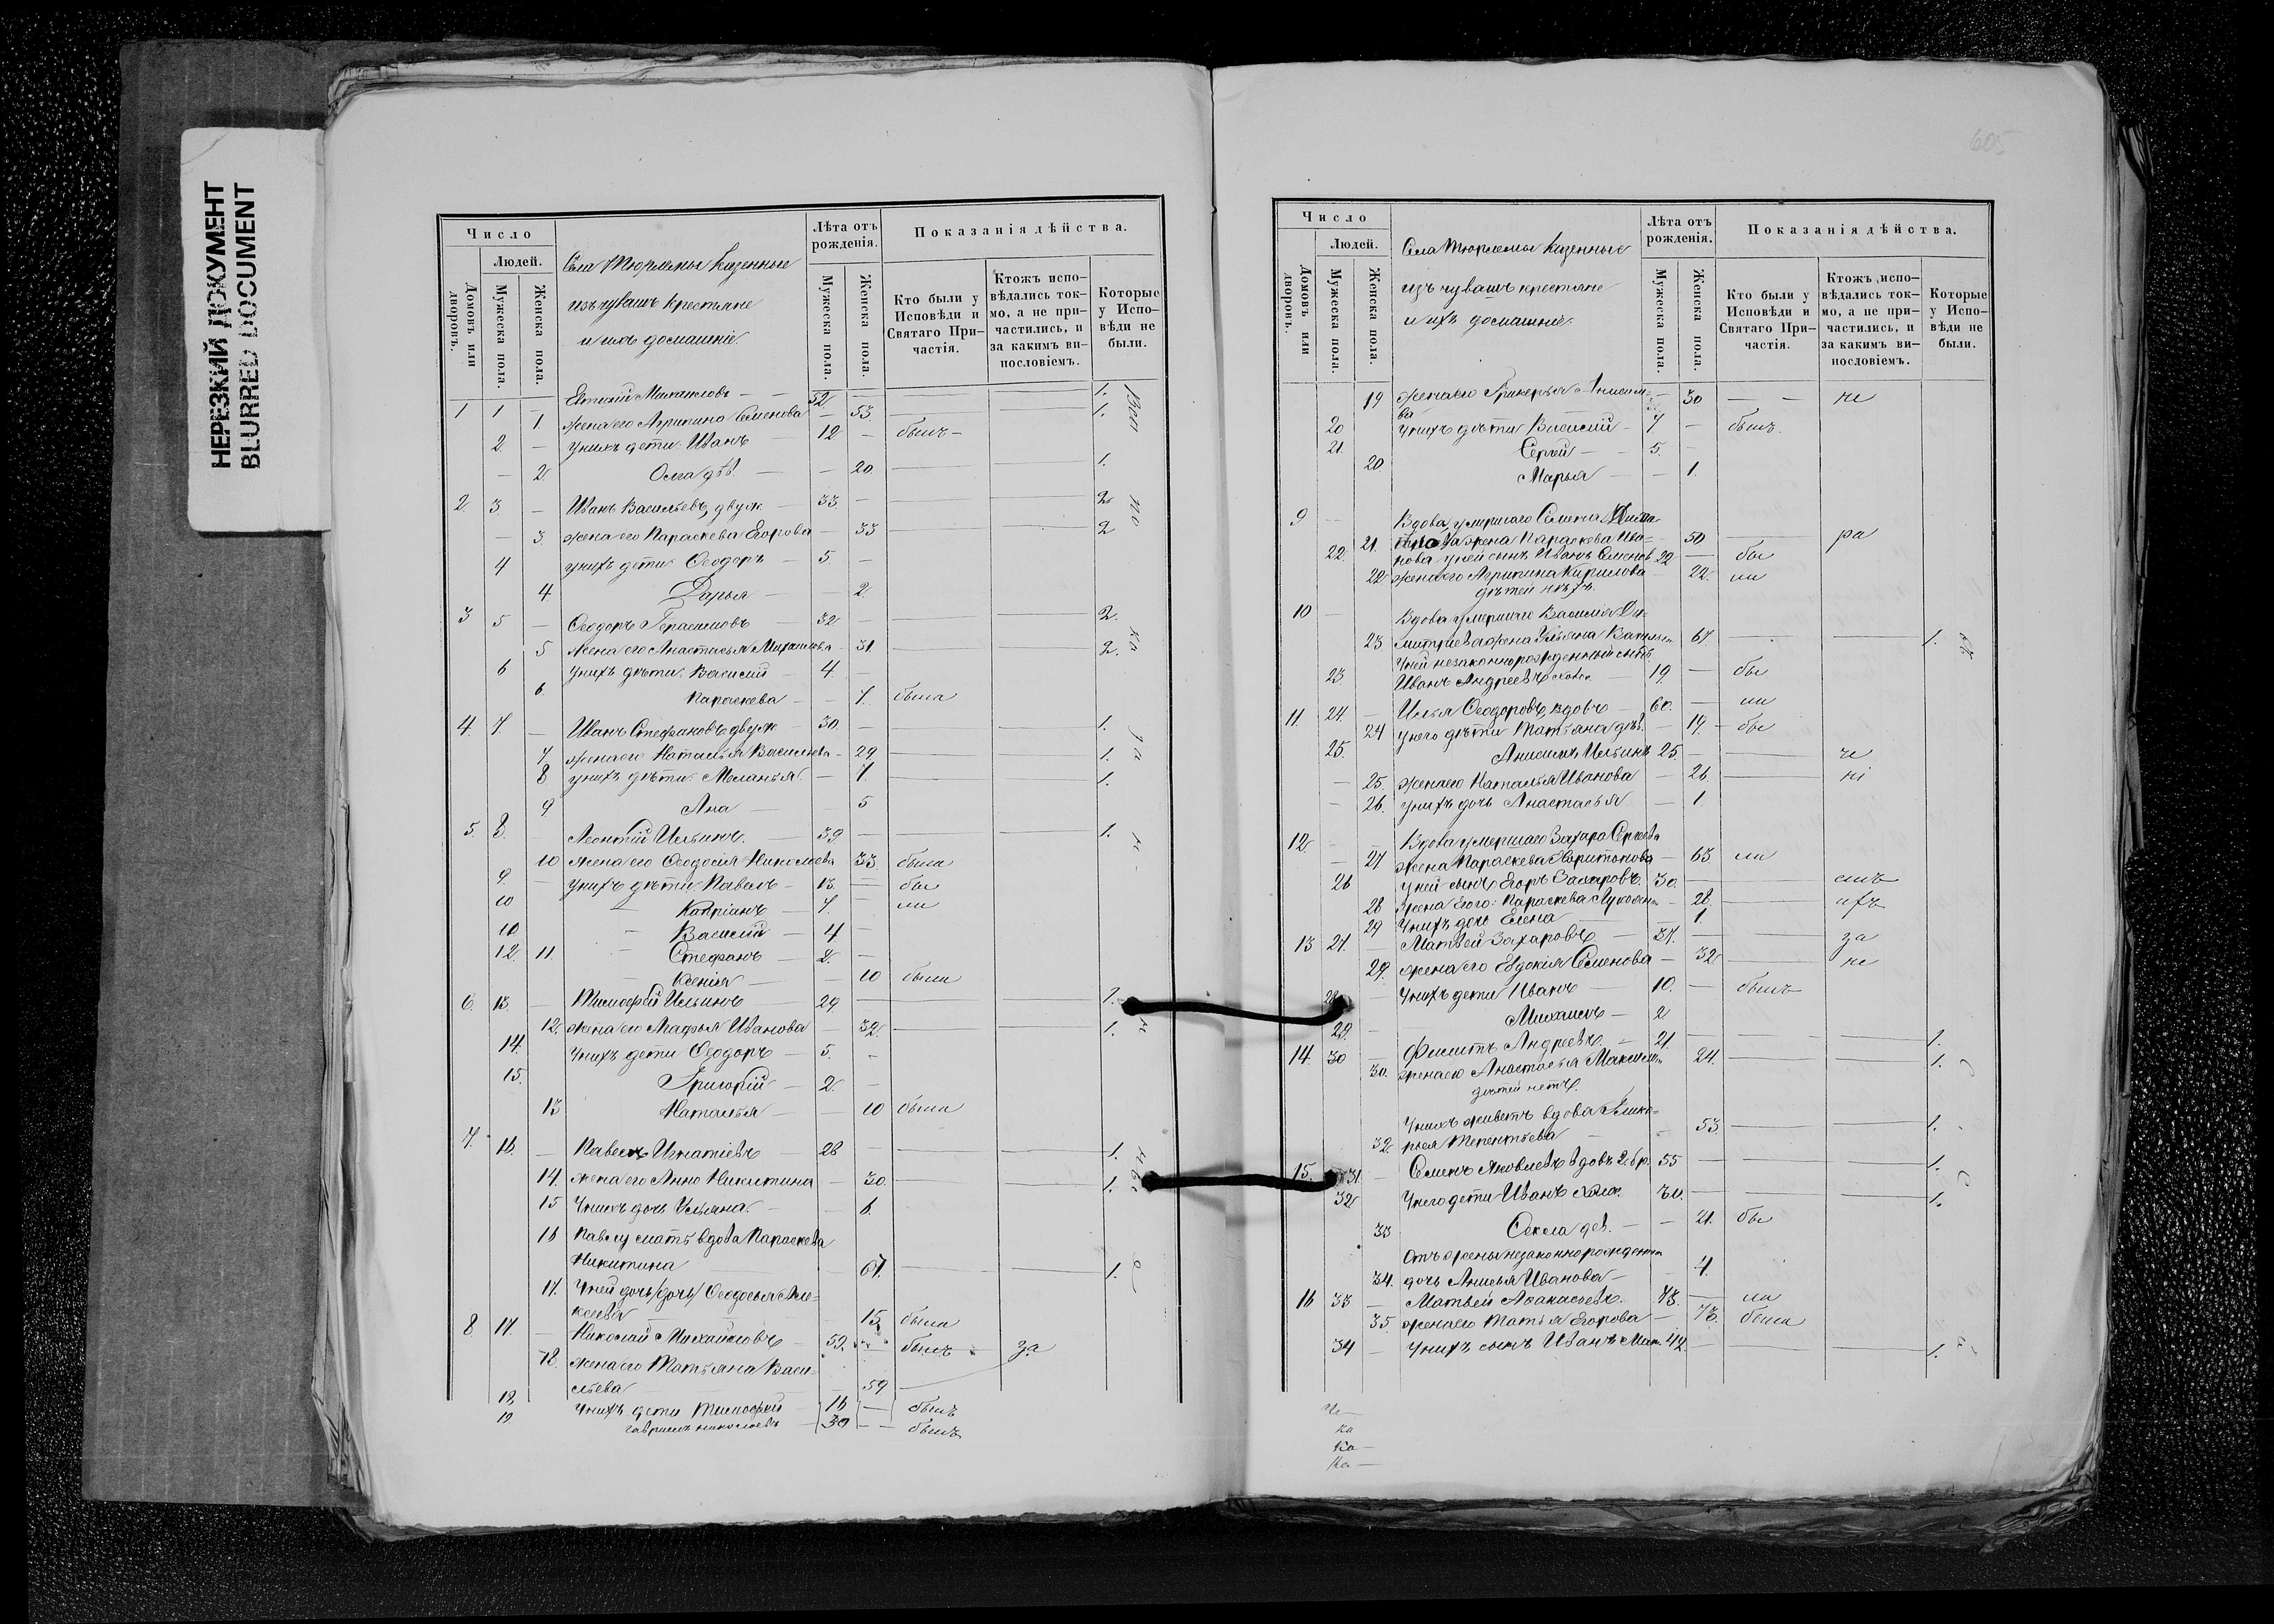 НЕРЕЗКИЙ ДОКУМЕНТ
BLURRED DOCUMENT
Число
Людей.
Домовъ или дворовъ.
Мужеска пола.
Женска пола.
Села Тюрлемы казенные
изъ чувашъ крестьяне
и ихъ домашніе
Лѣта отъ рожденія.
Мужеска пола.
Женска пола.
Показанія дѣйства.
Кто были у Исповѣди и Святаго При-частія.
Ктожъ испо-вѣдались ток-мо, а не при-частились, и за какимъ ви-нословіемъ.
Которые у Испо-вѣди не были.
1 1 Евтихій Михаиловъ — 52 — 1.
1. жена его Агрипина Семенова — 53 — 1.
2. — у нихъ дети: Иванъ 12 — былъ —
— 2. Олга дѣв. — 20 — 1.
2 3. — Иванъ Васильевъ, двуж. 33 — 2
— 3. жена его Параскева Егорова — 33 — 2
4 у нихъ дети: Ѳеодоръ — 5. —
4. Дарья — 2
3 5 — Ѳеодоръ Герасимовъ — 32 — 2.
5 жена его Анастасья Михаилова — 31. — 2.
6 у нихъ дѣти: Василій — 4. —
6. Параскева — 7. была
4. 7 — Иванъ Стефановъ двуж. — 30. — 1.
7 жена его Наталья Васильева — 29 — 1.
8 у нихъ дѣти: Меланья — 1. — 1.
9. Анна — 5
5. 8 Леонтій Ильинъ. — 39 — 1.
10 жена его Ѳеодосія Николаева 33 была
9. — у нихъ дѣти: Павелъ — 13. — бы
10 Капріанъ — 7. — ли
10 Василій — 4 —
12 11 Стефанъ — 2. —
Ксенія — 10 была
6. 13. — Тимофей Ильинъ — 29 — 1.
12. жена его Марья Иванова — 32. — 1.
14. у нихъ дети Ѳеодоръ — 5. —
15. Григорій — 2. —
13 Наталья — 10 была
7. 16. — Павелъ Игнатіевъ — 28 — 1.
14. жена его Анна Никитина — 30. — 1.
15 У нихъ дочь Ульяна. — 6.
16 Павлу мать вдова Параскева
Никитина 67. — 1.
17. У ней дочь (дочь) Ѳеодосья Але-
ксеева — 15. была
8. 17. — Николай Михайловъ — 59. былъ за
18. жена его Татьяна Васи-
льева — 59
18. У нихъ дети Тимофей — 16 — былъ
19 Гавріилъ Николаевъ — 30 — былъ
605
Число
Людей.
Домовъ или дворовъ.
Мужеска пола.
Женска пола.
Села Тюрлемы казенные
изъ чувашъ крестьяне
и ихъ домашніе.
Лѣта отъ рожденія.
Мужеска пола.
Женска пола.
Показанія дѣйства.
Кто были у Исповѣди и Святаго При-частія.
Ктожъ испо-вѣдались ток-мо, а не при-частились, и за какимъ ви-нословіемъ.
Которые у Испо-вѣди не были.
19 жена его Гликерья Анисимо-
ва — 30 — не
20 У нихъ дѣти Василій — 7 — былъ.
21. Сергей — 5. —
20 Марья — 1.
9 — Вдова умершаго Семена
21. жена Параскева Ива- 50 — ра
22. нова у ней сынъ Иванъ Семенов. 22 — бы
22 жена его Агрипина Кирилова 22. ли
дѣтей нѣтъ.
10 — Вдова умершаго Василія Ди-
23. митріева жена Ульяна 67. — 1.
У ней незаконнорожденный сынъ
23. Иванъ Андреевъ холос. — 19. — бы
11. 24. — Илья Ѳеодоровъ, вдовъ — 60. — ли
24 у него дѣти Татьяна дѣв. — 19. — бы
25. Анисимъ Ильинъ 25. — че
— 25. жена его Наталья Иванова — 26 — ні
— 26. у нихъ дочь Анастасья — 1
12 — Вдова умершаго Захара Сергеева
— 27 жена Параскева Харитонова — 63. ли
26 у ней сынъ Егоръ Захаровъ. 30. — емъ
28 Жена Егора: Параскева — 28. — ихъ
29 У нихъ дочь Елена — 1
13 27. — Матвей Захаровъ — 37. — за
29. жена его Евдокія Семенова — 32 — не
28 — У нихъ дети Иванъ — 10. — былъ
29. — Михаилъ — 2
14. 30 — Филиппъ Андреевъ. — 21. — 1.
30. жена его Анастасья Максим. 24. — 1.
дѣтей нетъ.
У нихъ живетъ вдова Глике-
32 рья Терентьева — 53. — 1.
15. 31. — Семенъ Яковлевъ вдовъ 2. бр. 55 — 1.
32 У него дети Иванъ холос. 30. — 1.
33 Ѳекла дев. — 21. бы
Отъ жены незаконнорожденная
34. дочь Анисья Иванова — 4.
16 33 — Матвей Аѳанасьевъ. — 73. — ли
35. жена его Татьяна Егорова — 73. была
34 — У нихъ сынъ Иванъ Мат. 42. — 1.